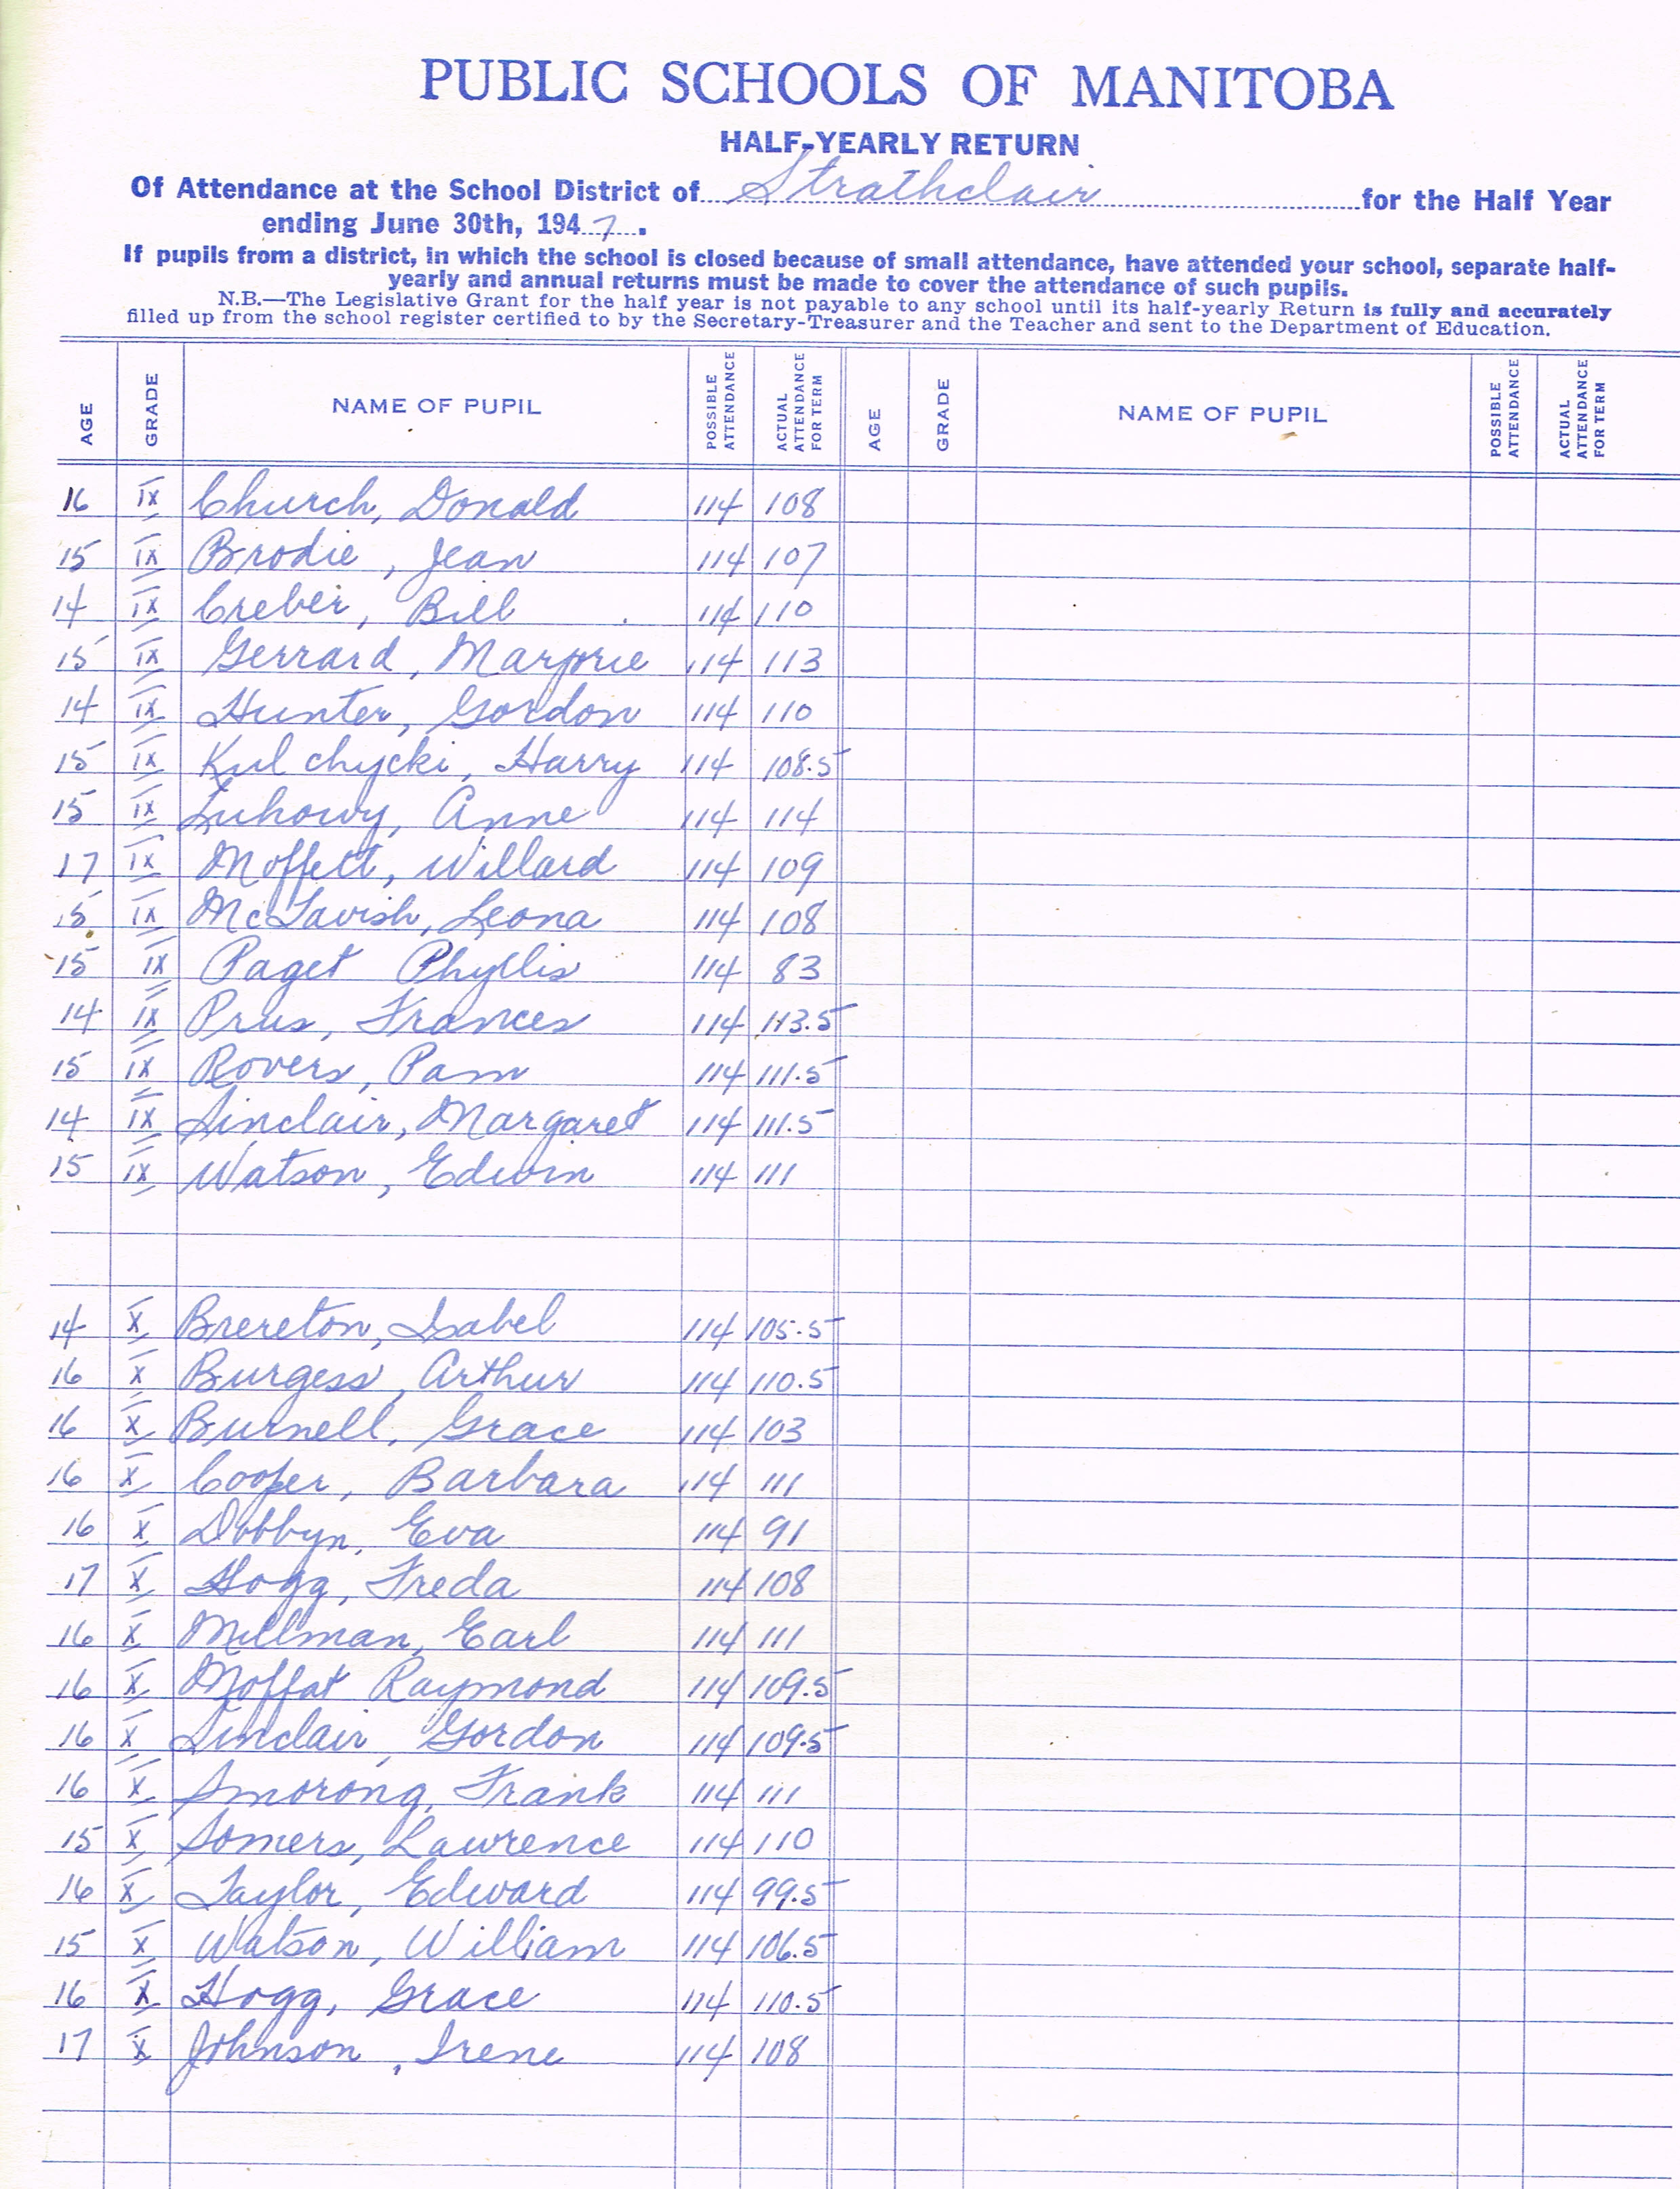 PUBLIC SCHOOLS OF MANITOBA
HALF-YEARLY RETURN
Of Attendance at the School District of Strathclair for the Half Year
ending June 30th, 1947.
If pupils from a district, in which the school is closed because of small attendance, have attended your school, separate half-
yearly and annual returns must be made to cover the attendance of such pupils.
N.B.—The Legislative Grant for the half year is not payable to any school until its half-yearly Return is fully and accurately
filled up from the school register certified to by the Secretary-Treasurer and the Teacher and sent to the Department of Education.
AGE GRADE NAME OF PUPIL POSSIBLE ATTENDANCE ACTUAL ATTENDANCE FOR TERM AGE GRADE NAME OF PUPIL POSSIBLE ATTENDANCE ACTUAL ATTENDANCE FOR TERM
16 IX Church, Donald 114 108
15 IX Brodie, Jean 114 107
14 IX Creber, Bill 114 110
15 IX Gerrard, Marjorie 114 113
14 IX Hunter, Gordon 114 110
15 IX Kulchycki, Harry 114 108.5
15 IX Luhowy, Anne 114 114
17 IX Moffett, Willard 114 109
15 IX McTavish, Leona 114 108
15 IX Paget Phyllis 114 83
14 IX Prus, Frances 114 113.5
15 IX Rovers, Pam 114 111.5
14 IX Sinclair, Margaret 114 111.5
15 IX Watson, Edwin 114 111
14 X Brereton, Isabel 114 105.5
16 X Burgess, Arthur 114 110.5
16 X Burnell, Grace 114 103
16 X Cooper, Barbara 114 111
16 X Dobbyn, Eva 114 91
17 X Hogg, Freda 114 108
16 X Millman, Earl 114 111
16 X Moffat Raymond 114 109.5
16 X Sinclair, Gordon 114 109.5
16 X Smorong, Frank 114 111
15 X Somers, Lawrence 114 110
16 X Taylor, Edward 114 99.5
15 X Watson, William 114 106.5
16 X Hogg, Grace 114 110.5
17 X Johnson, Irene 114 108